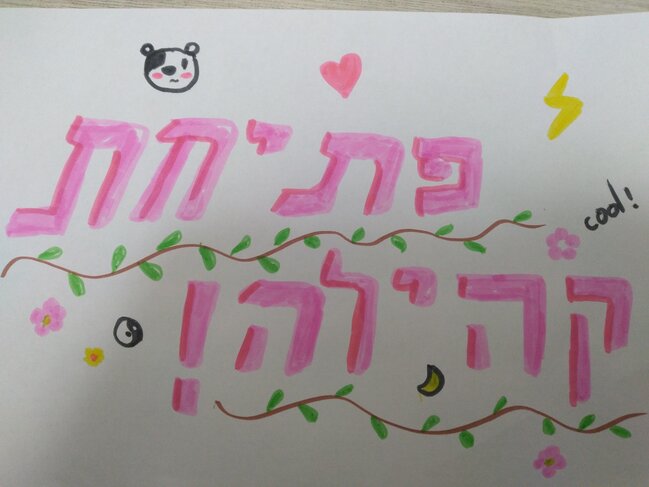 פתיחת
cool!
קהילה!